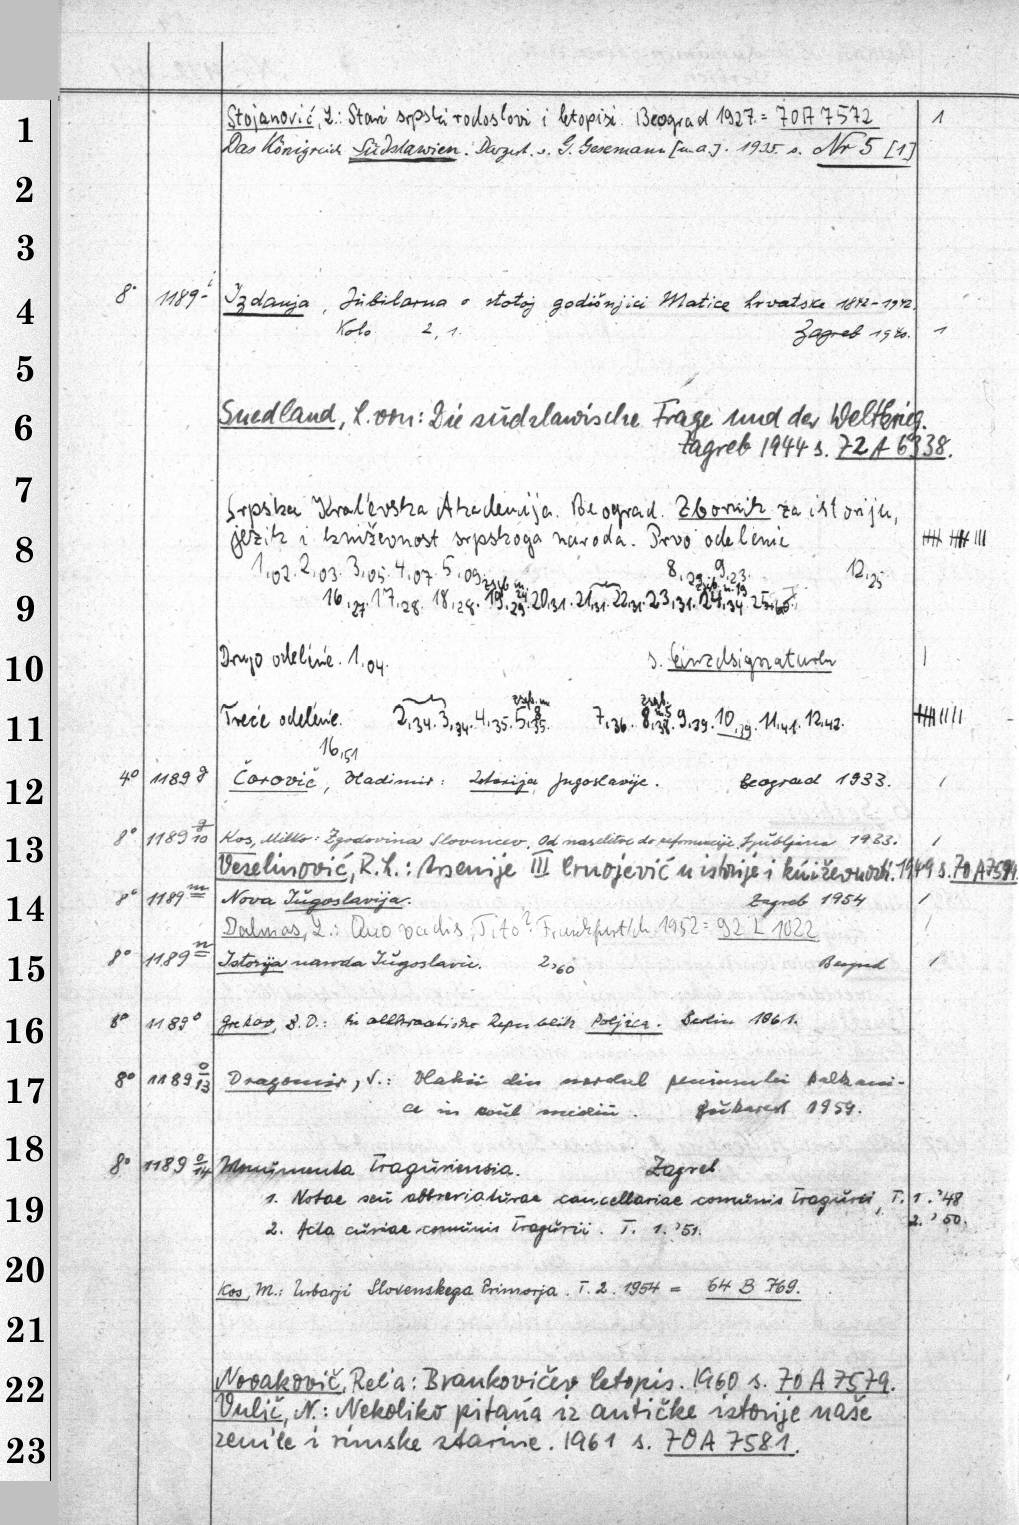 1 Stojanović, L.: Stari srpski rodoslovi i letopisi. Beograd 1927 = 70 A 7572 1
Das Königreich Südslawien. Dargest. v. G. Gesemann [u.a.]. 1935 s. Nr 5 [1]
2
3
4 8° 1189-i Izdanja, Jubilarna o stotoj godišnjici Matice hrvatske 1842-1942.
Kolo 2, 1. Zagreb 1
5
6 Suedland, L. von: Die südslawische Frage und der Weltkrieg.
Zagreb 1944 s. 72 A 6338.
7
Srpska Kral'evska Akademija. Beograd. Zbornik za istoriju,
8 jezik i književnost srpskoga naroda. Prvo odelenie
1,02. 2,03. 3,05. 4,07. 5,09 8, 9,23. 12,25
9 16,27 17,28. 18,28. 19,29 20,31. 21,31. 22,31 23,31. 24,34
10 Drugo odelenie. 1,04. s. Einzelsignaturen 1
11 Treće odelenie. 2,34. 3,34. 4,35. 5,35. 7,36. 8,38. 9,39. 10,39. 11,41. 12,42.
16,51
12 4° 1189 g Čorović, Vladimir: Istorija Jugoslavije. Beograd 1933. 1
13 8° 1189 g/10 Kos, Milko: Zgodovina Slovencev. Od naselitve do reformacije. Ljubljana 1933. 1
Veselinović, R. L.: Arsenije III Crnojević u istorije i književnosti. 1949 s. 70 A 7594.
14 8° 1189 m Nova Jugoslavija. Zagreb 1954 1
Dalmas, L.: Quo vadis, Tito? Frankfurt/M. 1952 = 92 L 1022
15 8° 1189 n Istorija naroda Jugoslavie. 2,60 Beograd 1
16 8° 1189 o Grekov, B. D.: Die altkroatische Republik Poljica. Berlin 1961.
17 8° 1189 o/13 Dragomir, S.: Vlahii din nordul peninsulei Balkani-
ce in evul mediu. Bukarest 1959.
18 8° 1189 o/14 Monumenta Traguriensia. Zagreb
19 1. Notae seu abbreviaturae cancellariae comunis Tragurii, T. 1. '48
2. '50.
2. Acta curiae comunis Tragurii. T. 1. '51.
20 Kos, M.: Urbarji Slovenskega Primorja. T. 2. 1954 = 64 B 769.
21
22 Novaković, Rel'a: Brankovičev letopis. 1960 s. 70 A 7579.
Vulić, N.: Nekoliko pitańa iz antičke istorije naše
23 zeml'e i rimske starine. 1961 s. 70 A 7581.